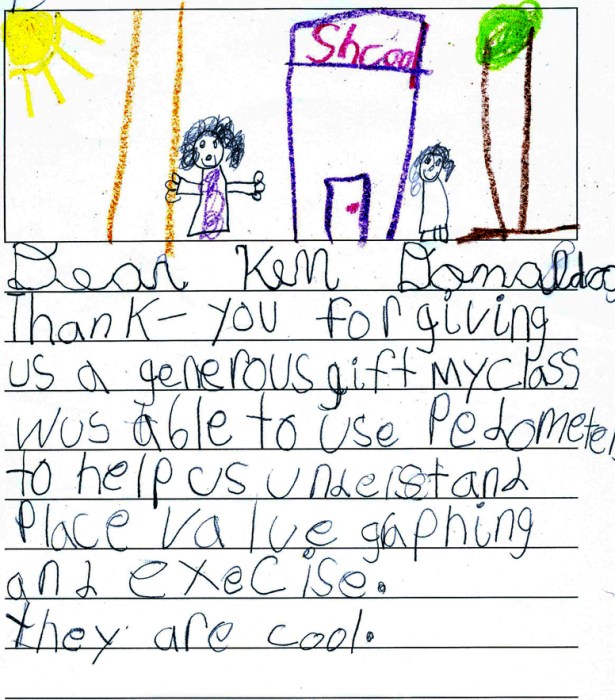 Shcool
Dear Ken Donaldoo
Thank-you for giving
us a generous gift My class
wus able to use Pedometer
to help us understand
Place value gaphing
and execise.
they are cool.